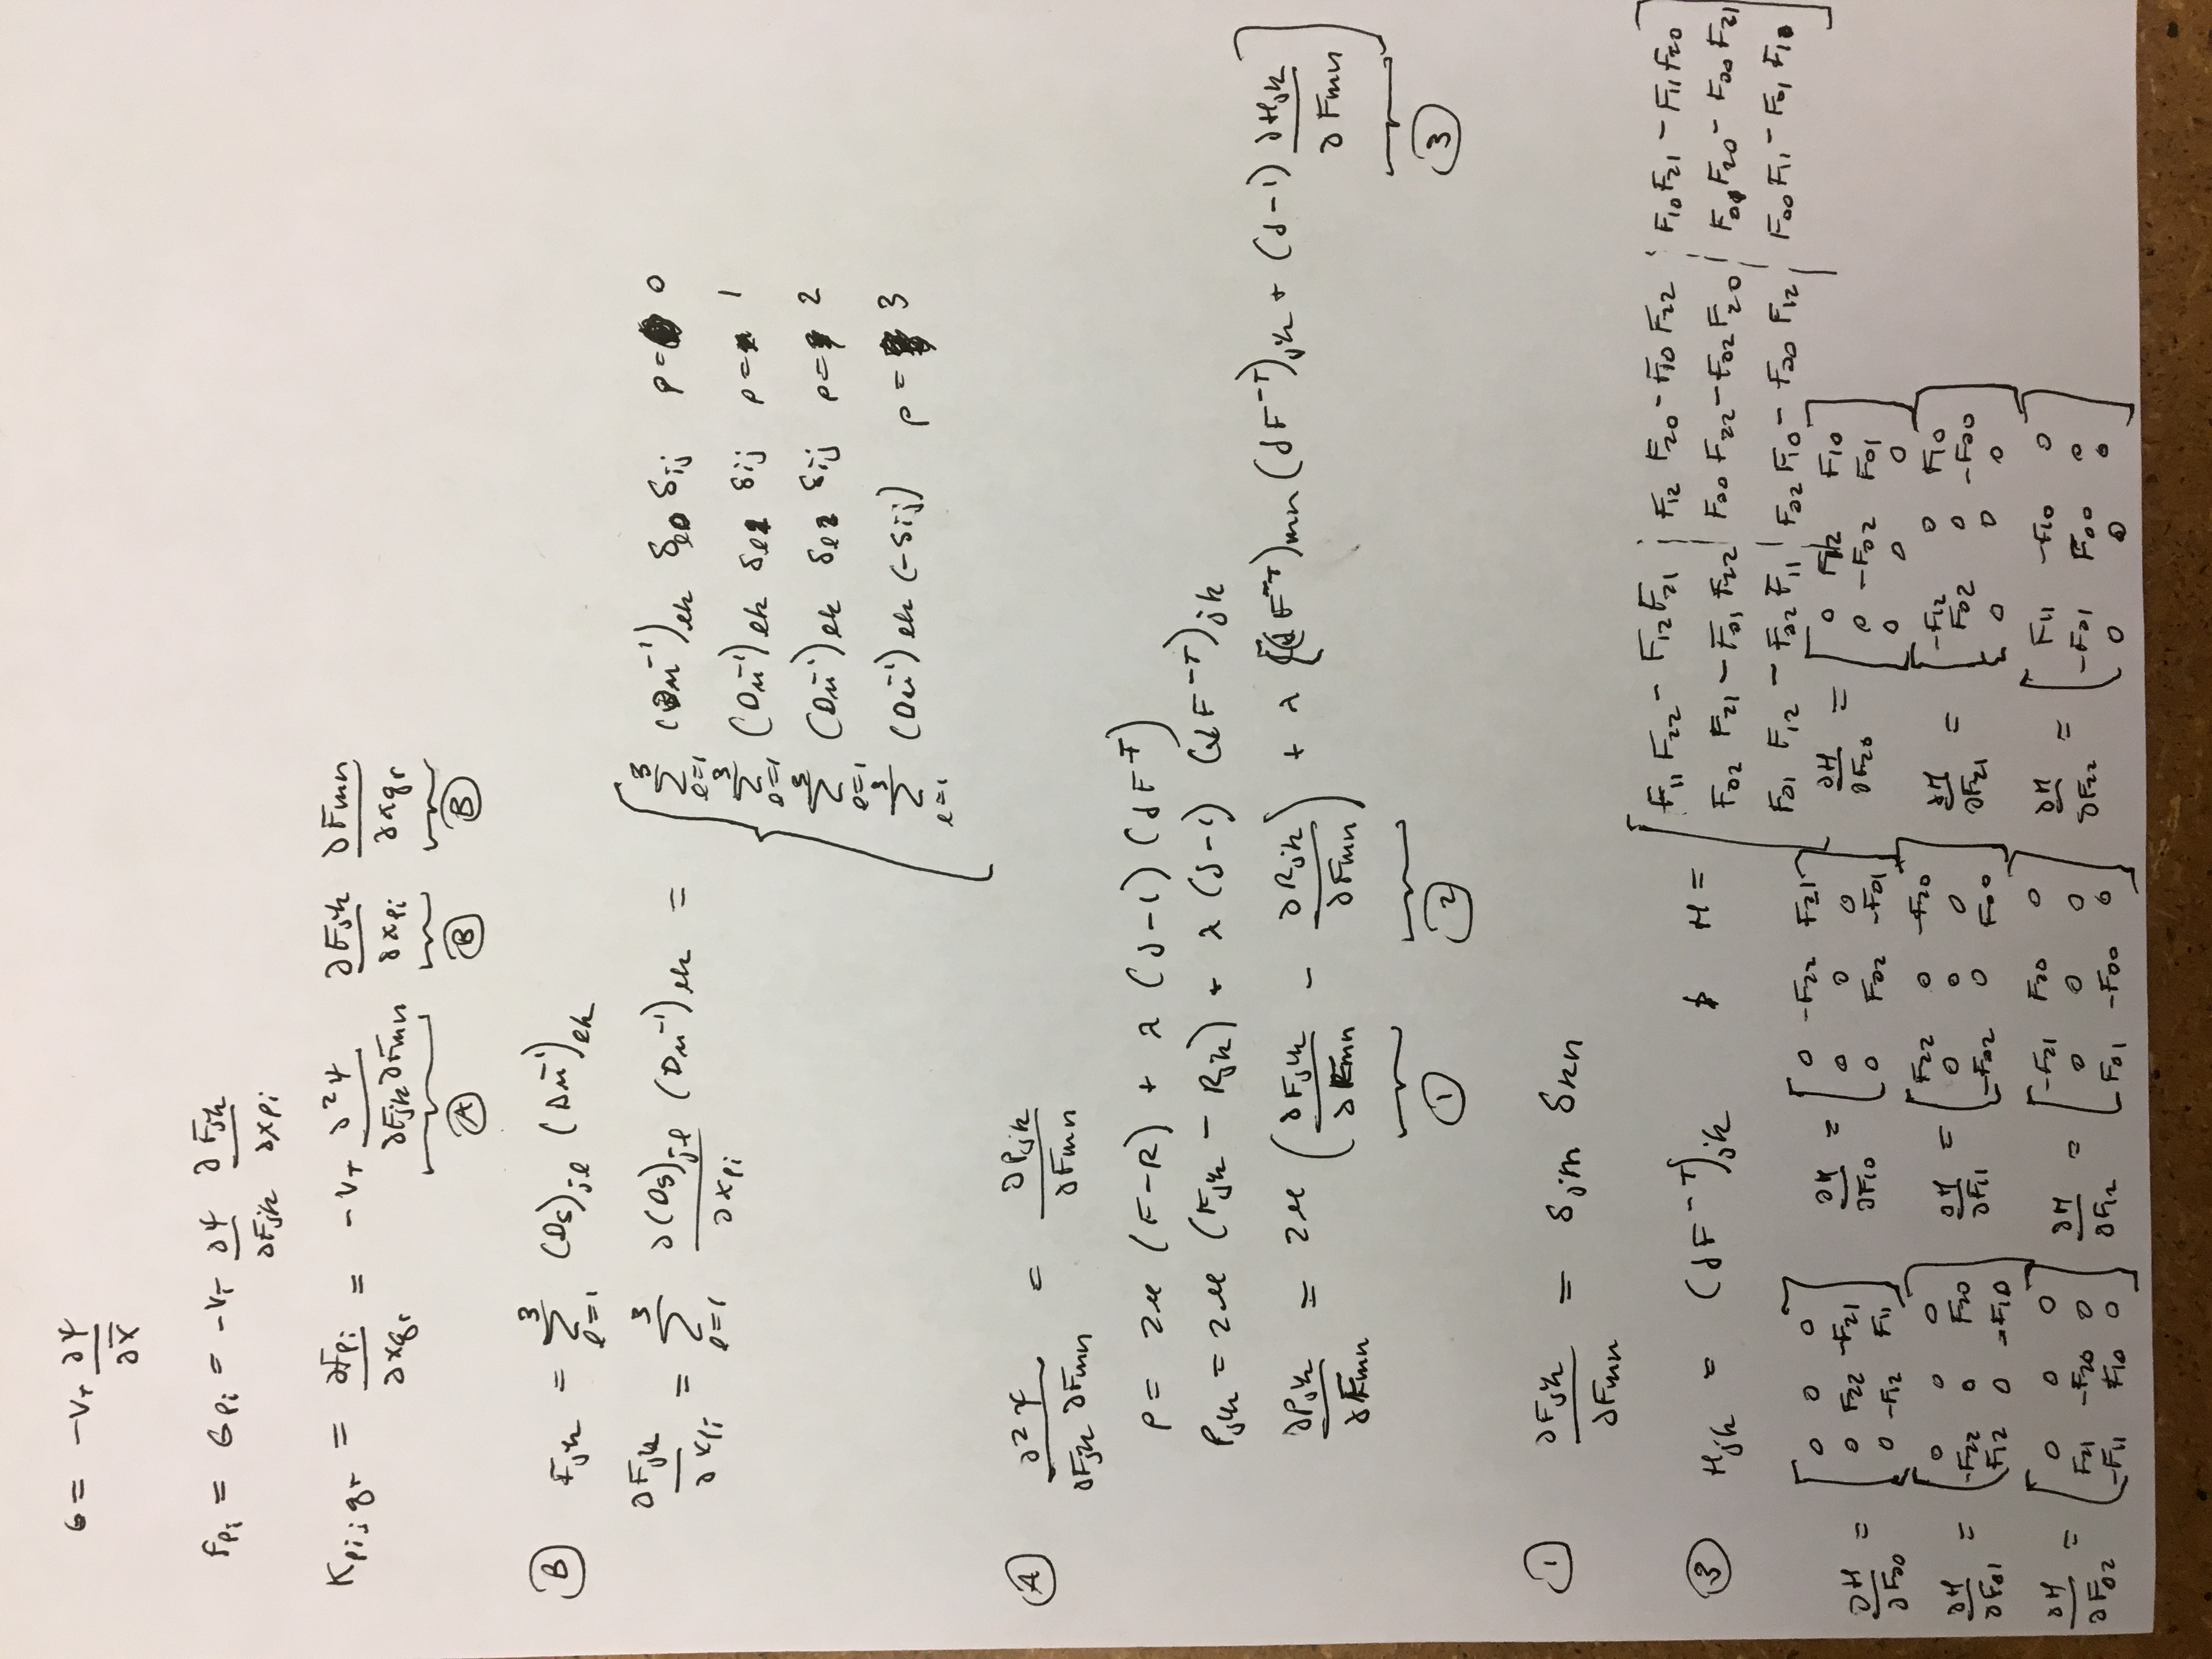 G = -V_T ∂Ψ/∂x̄
f_pi = G_pi = -V_T ∂Ψ/∂F_jk ∂F_jk/∂x_pi
K_pi;qr = ∂f_pi/∂x_qr = -V_T ∂²Ψ/∂F_jk∂F_mn ∂F_jk/∂x_pi ∂F_mn/∂x_qr
Ⓐ Ⓑ Ⓑ
Ⓑ F_jk = Σ_{l=1}^{3} (Ds)_jl (Dm⁻¹)_lk
∂F_jk/∂x_pi = Σ_{l=1}^{3} ∂(Ds)_jl/∂x_pi (Dm⁻¹)_lk = { Σ_{l=1}^{3} (Dm⁻¹)_lk δ_l0 δ_ij p = 0
Σ_{l=1}^{3} (Dm⁻¹)_lk δ_l1 δ_ij p = 1
Σ_{l=1}^{3} (Dm⁻¹)_lk δ_l2 δ_ij p = 2
Σ_{l=1}^{3} (Dm⁻¹)_lk (-δ_ij) p = 3
Ⓐ ∂²Ψ/∂F_jk ∂F_mn = ∂P_jk/∂F_mn
P = 2μ (F-R) + λ (J-1) (JF^-T)
P_jk = 2μ (F_jk - R_jk) + λ (J-1) (JF^-T)_jk
∂P_jk/∂F_mn = 2μ (∂F_jk/∂F_mn - ∂R_jk/∂F_mn) + λ [(JF^-T)_mn (JF^-T)_jk + (J-1) ∂H_jk/∂F_mn]
① ② ③
① ∂F_jk/∂F_mn = δ_jm δ_kn
③ H_jk = (JF^-T)_jk & H = [ F11 F22 - F12 F21 | F12 F20 - F10 F22 | F10 F21 - F11 F20
F02 F21 - F01 F22 | F00 F22 - F02 F20 | F01 F20 - F00 F21
F01 F12 - F02 F11 | F02 F10 - F00 F12 | F00 F11 - F01 F10 ]
∂H/∂F00 = [ 0 0 0 ; 0 F22 -F21 ; 0 -F12 F11 ] ∂H/∂F10 = [ 0 -F22 F21 ; 0 0 0 ; 0 F02 -F01 ] ∂H/∂F20 = [ 0 F12 F10 ; 0 -F02 F01 ; 0 0 0 ]
∂H/∂F01 = [ 0 0 0 ; -F22 0 F20 ; F12 0 -F10 ] ∂H/∂F11 = [ F22 0 -F20 ; 0 0 0 ; -F02 0 F00 ] ∂H/∂F21 = [ -F12 0 F10 ; F02 0 -F00 ; 0 0 0 ]
∂H/∂F02 = [ 0 0 0 ; F21 -F20 0 ; -F11 F10 0 ] ∂H/∂F12 = [ -F21 F20 0 ; 0 0 0 ; F01 -F00 0 ] ∂H/∂F22 = [ F11 -F10 0 ; -F01 F00 0 ; 0 0 0 ]